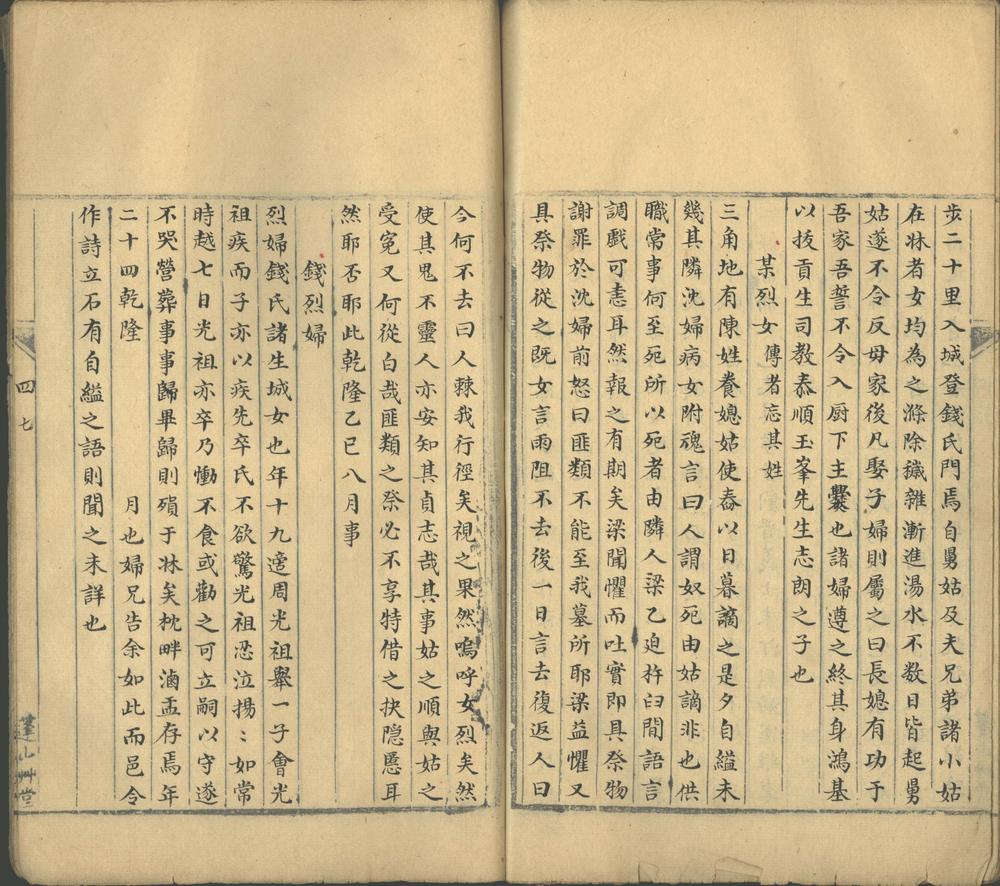 步二十里入城登錢氏門焉自舅姑及夫兄弟諸小姑
在牀者女均為之滌除穢雜漸進湯水不数日皆起舅
姑遂不令反毋家後凡娶子婦則屬之曰長媳有功于
吾家吾誓不令入厨下主爨也諸婦遵之終其身鴻基
以拔貢生司教泰順玉峯先生志朗之子也
某烈女傳者忘其姓
三角地有陳姓養媳姑使舂以日暮謫之是夕自縊未
幾其隣沈婦病女附魂言曰人謂奴死由姑謫非也供
職常事何至死所以死者由隣人梁乙迫杵臼間語言
調戲可恚耳然報之有期矣梁聞懼而吐實即具祭物
謝罪於沈婦前怒曰匪類不能至我墓所耶梁益懼又
具祭物從之既女言雨阻不去後一日言去復返人曰
今何不去曰人棘我行徑矣視之果然嗚呼女烈矣然
使其鬼不靈人亦安知其貞志哉其事姑之順與姑之
受寃又何從白哉匪類之祭必不享特借之抉隱慝耳
然耶否耶此乾隆乙巳八月事
錢烈婦
烈婦錢氏諸生城女也年十九適周光祖舉一子會光
祖疾而子亦以疾先卒氏不欲驚光祖忍泣揚〻如常
時越七日光祖亦卒乃慟不食或勸之可立嗣以守遂
不哭營葬事事歸畢歸則殞于牀矣枕畔滷盂存焉年
二十四乾隆　　月也婦兄告余如此而邑令
作詩立石有自縊之語則聞之未詳也
四
七
蓬山艸堂